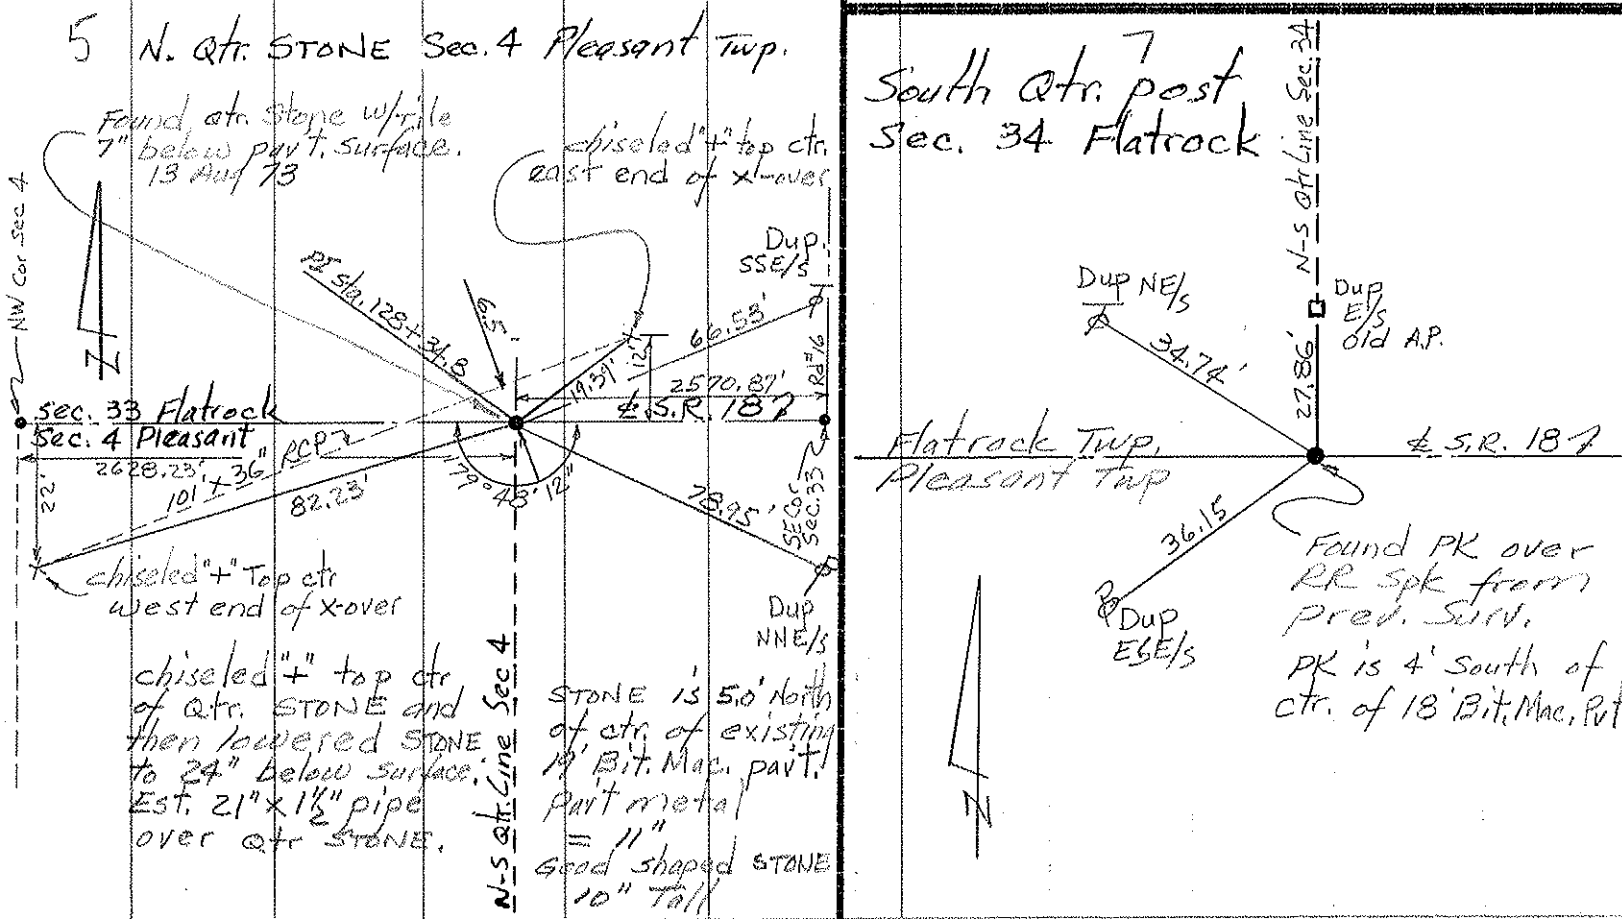 5 N. Qtr. STONE Sec. 4 Pleasant Twp.
Found qtr. Stone w/rile
7" below pav't. surface.
13 Aug 73
chiseled "+" top ctr.
east end of x-over
NW Cor Sec 4
N
PI sta. 128+34.8
6.5'
Dup.
SSE/s
66.53'
12'
19.39'
2570.87'
Rd #16
℄ S.R. 187
sec. 33 Flatrock
Sec. 4 Pleasant
2628.23'
101' ± 36" RCP
22'
82.23'
179° 48' 12"
78.95'
SE Cor
Sec. 33
chiseled "+" Top ctr
west end of x-over
Dup
NNE/s
chiseled "+" top ctr
of Qtr. STONE and
then lowered STONE
to 24" below surface.
Est. 21" x 1½" pipe
over Qtr STONE.
N-S Qtr. Line Sec 4
STONE is 5.0' North
of ctr. of existing
19' Bit. Mac. pav't.
Pav't metal
= 11"
Good shaped STONE
10" Tall
7
South Qtr. post
Sec. 34 Flatrock
N-S Qtr Line Sec. 34
Dup NE/s
Dup
E/s
old A.P.
34.74'
27.86'
Flatrock Twp.
Pleasant Twp
℄ S.R. 187
36.15
Dup
EbE/s
Found PK over
RR Spk from
prev. Surv.
PK is 4' South of
ctr. of 18' Bit. Mac. Pvt
N